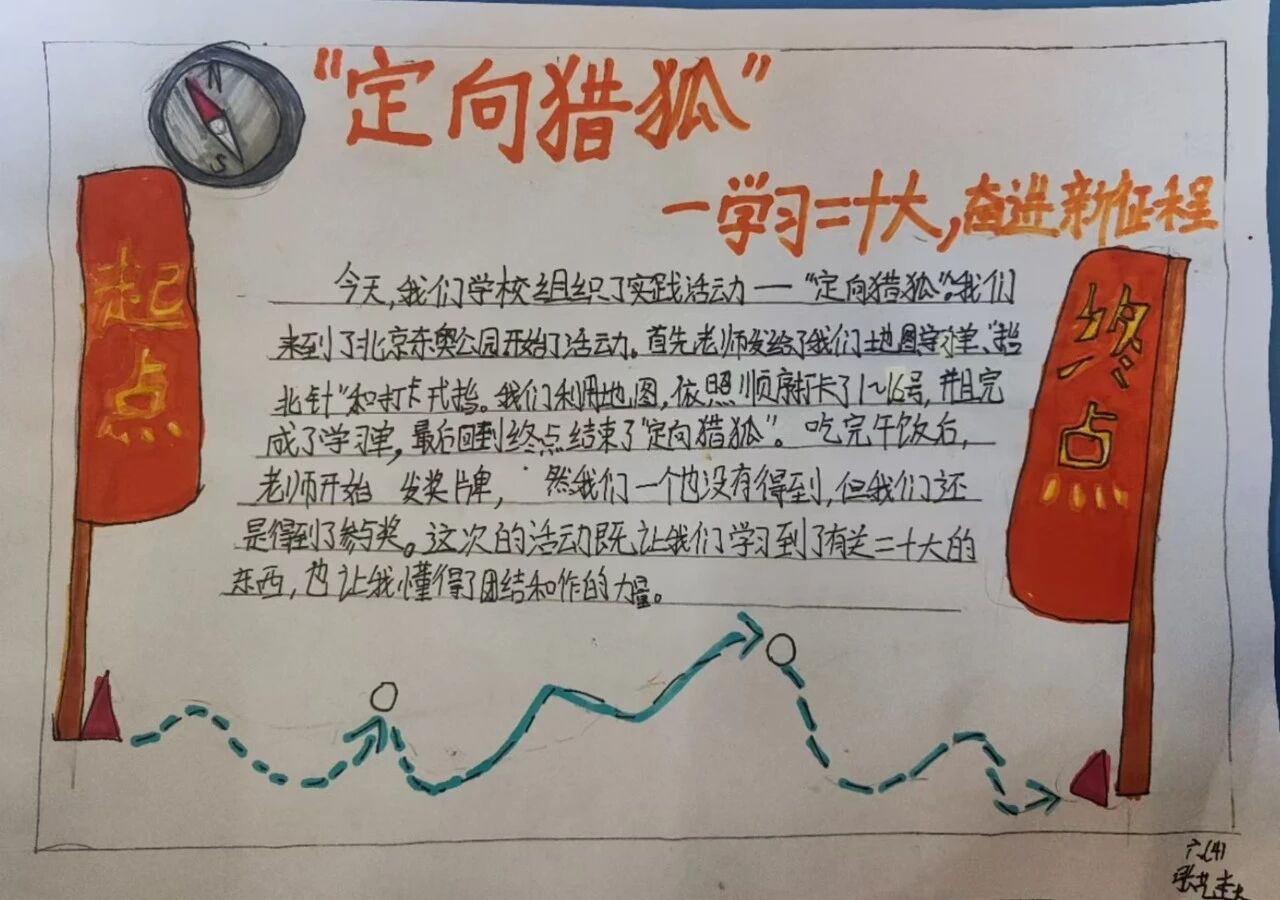 N
S
“定向猎狐”
一学习二十大，奋进新征程
起点
终点
今天，我们学校组织了实践活动一“定向猎狐”。我们
来到了北京东奥公园开始了活动。首先老师发给了我们地图学习单、“指
北针”和打卡戒指。我们利用地图，依照顺序打卡了1~16号，并且完
成了学习单，最后回到终点结束了“定向猎狐”。吃完午饭后，
老师开始 发奖牌， 然我们一个也没有得到，但我们还
是得到了参与奖。这次的活动既让我们学习到了有关二十大的
东西，也让我懂得了团结和作的力量。
六(4)